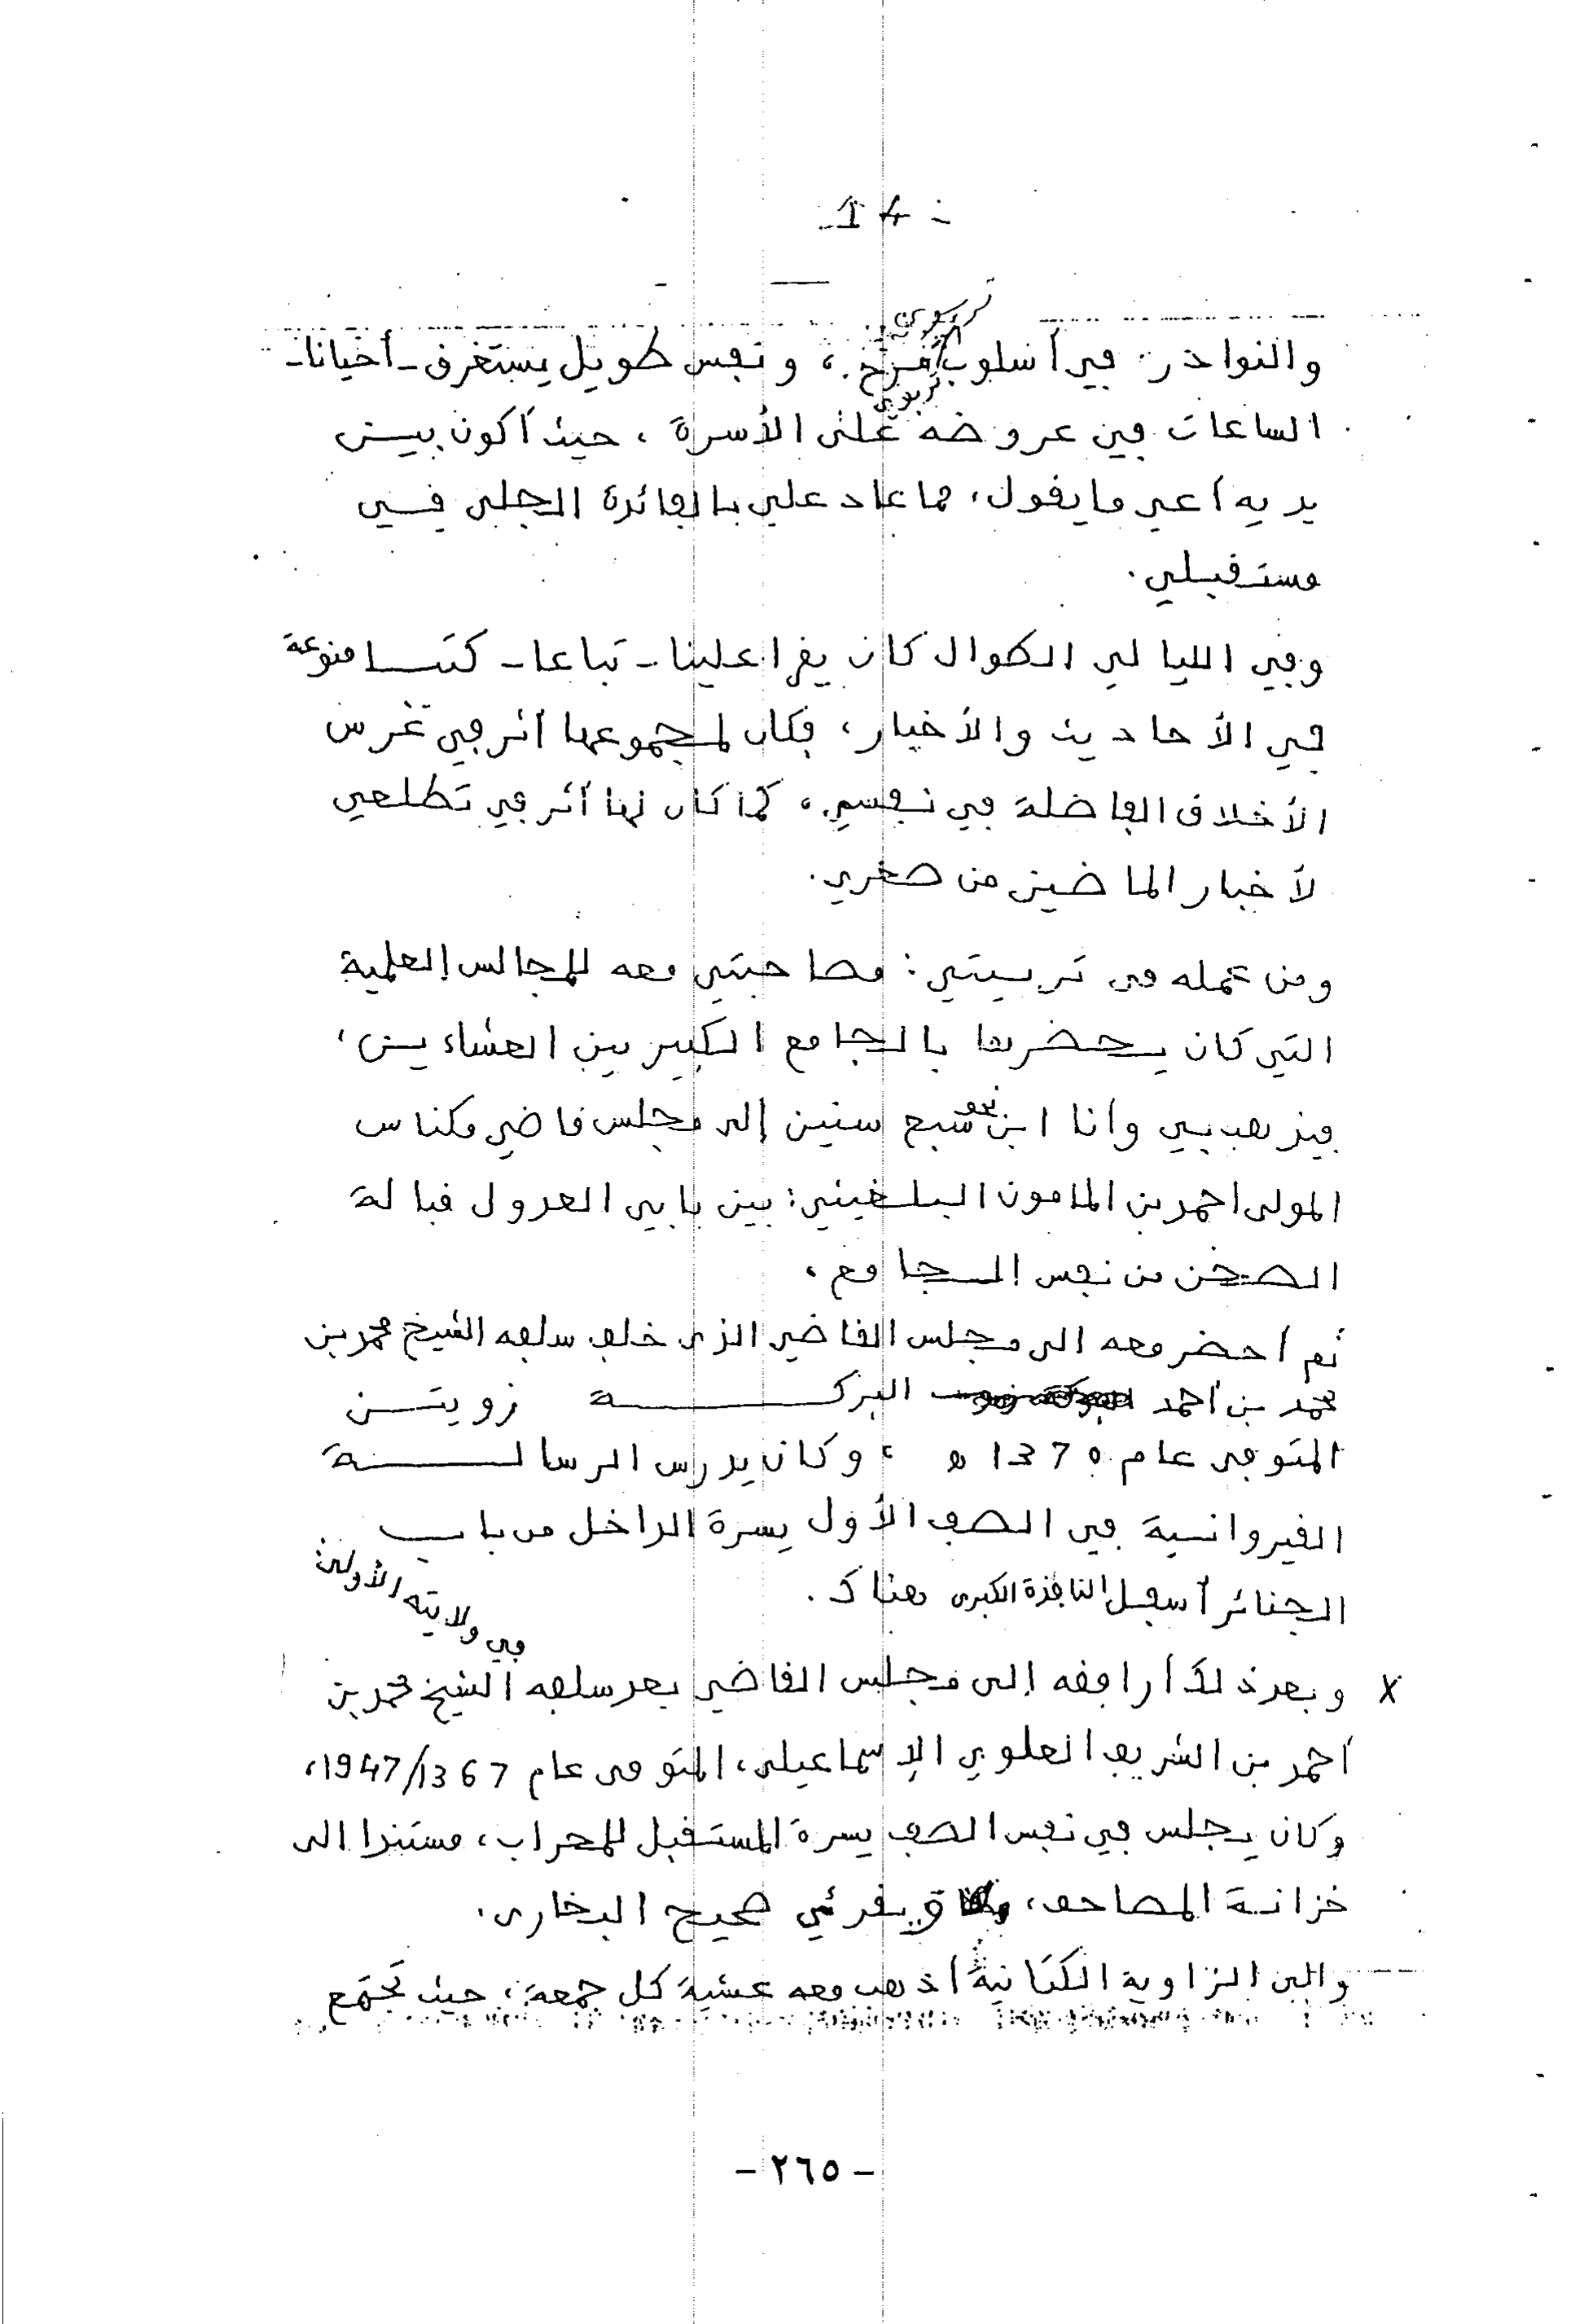 - 14 -
تربوي
والنوادر في أسلوب مرح، ونفس طويل يستغرق - أحيانا -
تربوي
الساعات في عروضه على الأسرة، حيث أكون بين
يديه أعي ما يقول، مما عاد علي بالفائدة الجلى في
مستقبلي.
وفي الليالي الطوال كان يقرأ علينا - تباعا - كتبا منوعة
في الأحاديث والأخبار، فكان لمجموعها أثر في غرس
الأخلاق الفاضلة في نفسي، كما كان لها أثر في تطلعي
لأخبار الماضين من صغري.
ومن عمله في تربيتي: مصاحبتي معه للمجالس العلمية
التي كان يحضرها بالجامع الكبير بين العشاءين،
فيذهب بي وأنا ابن نحو سبع سنين إلى مجلس قاضي مكناس
المولى احمد بن المامون البلغيثي: بين بابي العدول قبالة
الصحن من نفس الجامع،
ثم أحضر معه الى مجلس القاضي الذي خلف سلفه الشيخ محمد بن
محمد بن أحمد البركة زويتن
المتوفى عام 1370 ه، وكان يدرس الرسالة
القيروانية في الصف الأول يسرة الداخل من باب
الجنائز أسفل النافذة الكبرى هناك.
في ولايته الأولى:
x وبعد ذلك أرافقه إلى مجلس القاضي بعد سلفه الشيخ محمد بن
أحمد بن الشريف العلوي الإسماعيلي، المتوفى عام 1367/1947،
وكان يجلس في نفس الصف يسرة المستقبل للمحراب، مستندا الى
خزانة المصاحف، ويقرئ صحيح البخاري.
والى الزاوية الكتانية أذهب معه عشية كل جمعة، حيث تجتمع
- ٢٦٥ -